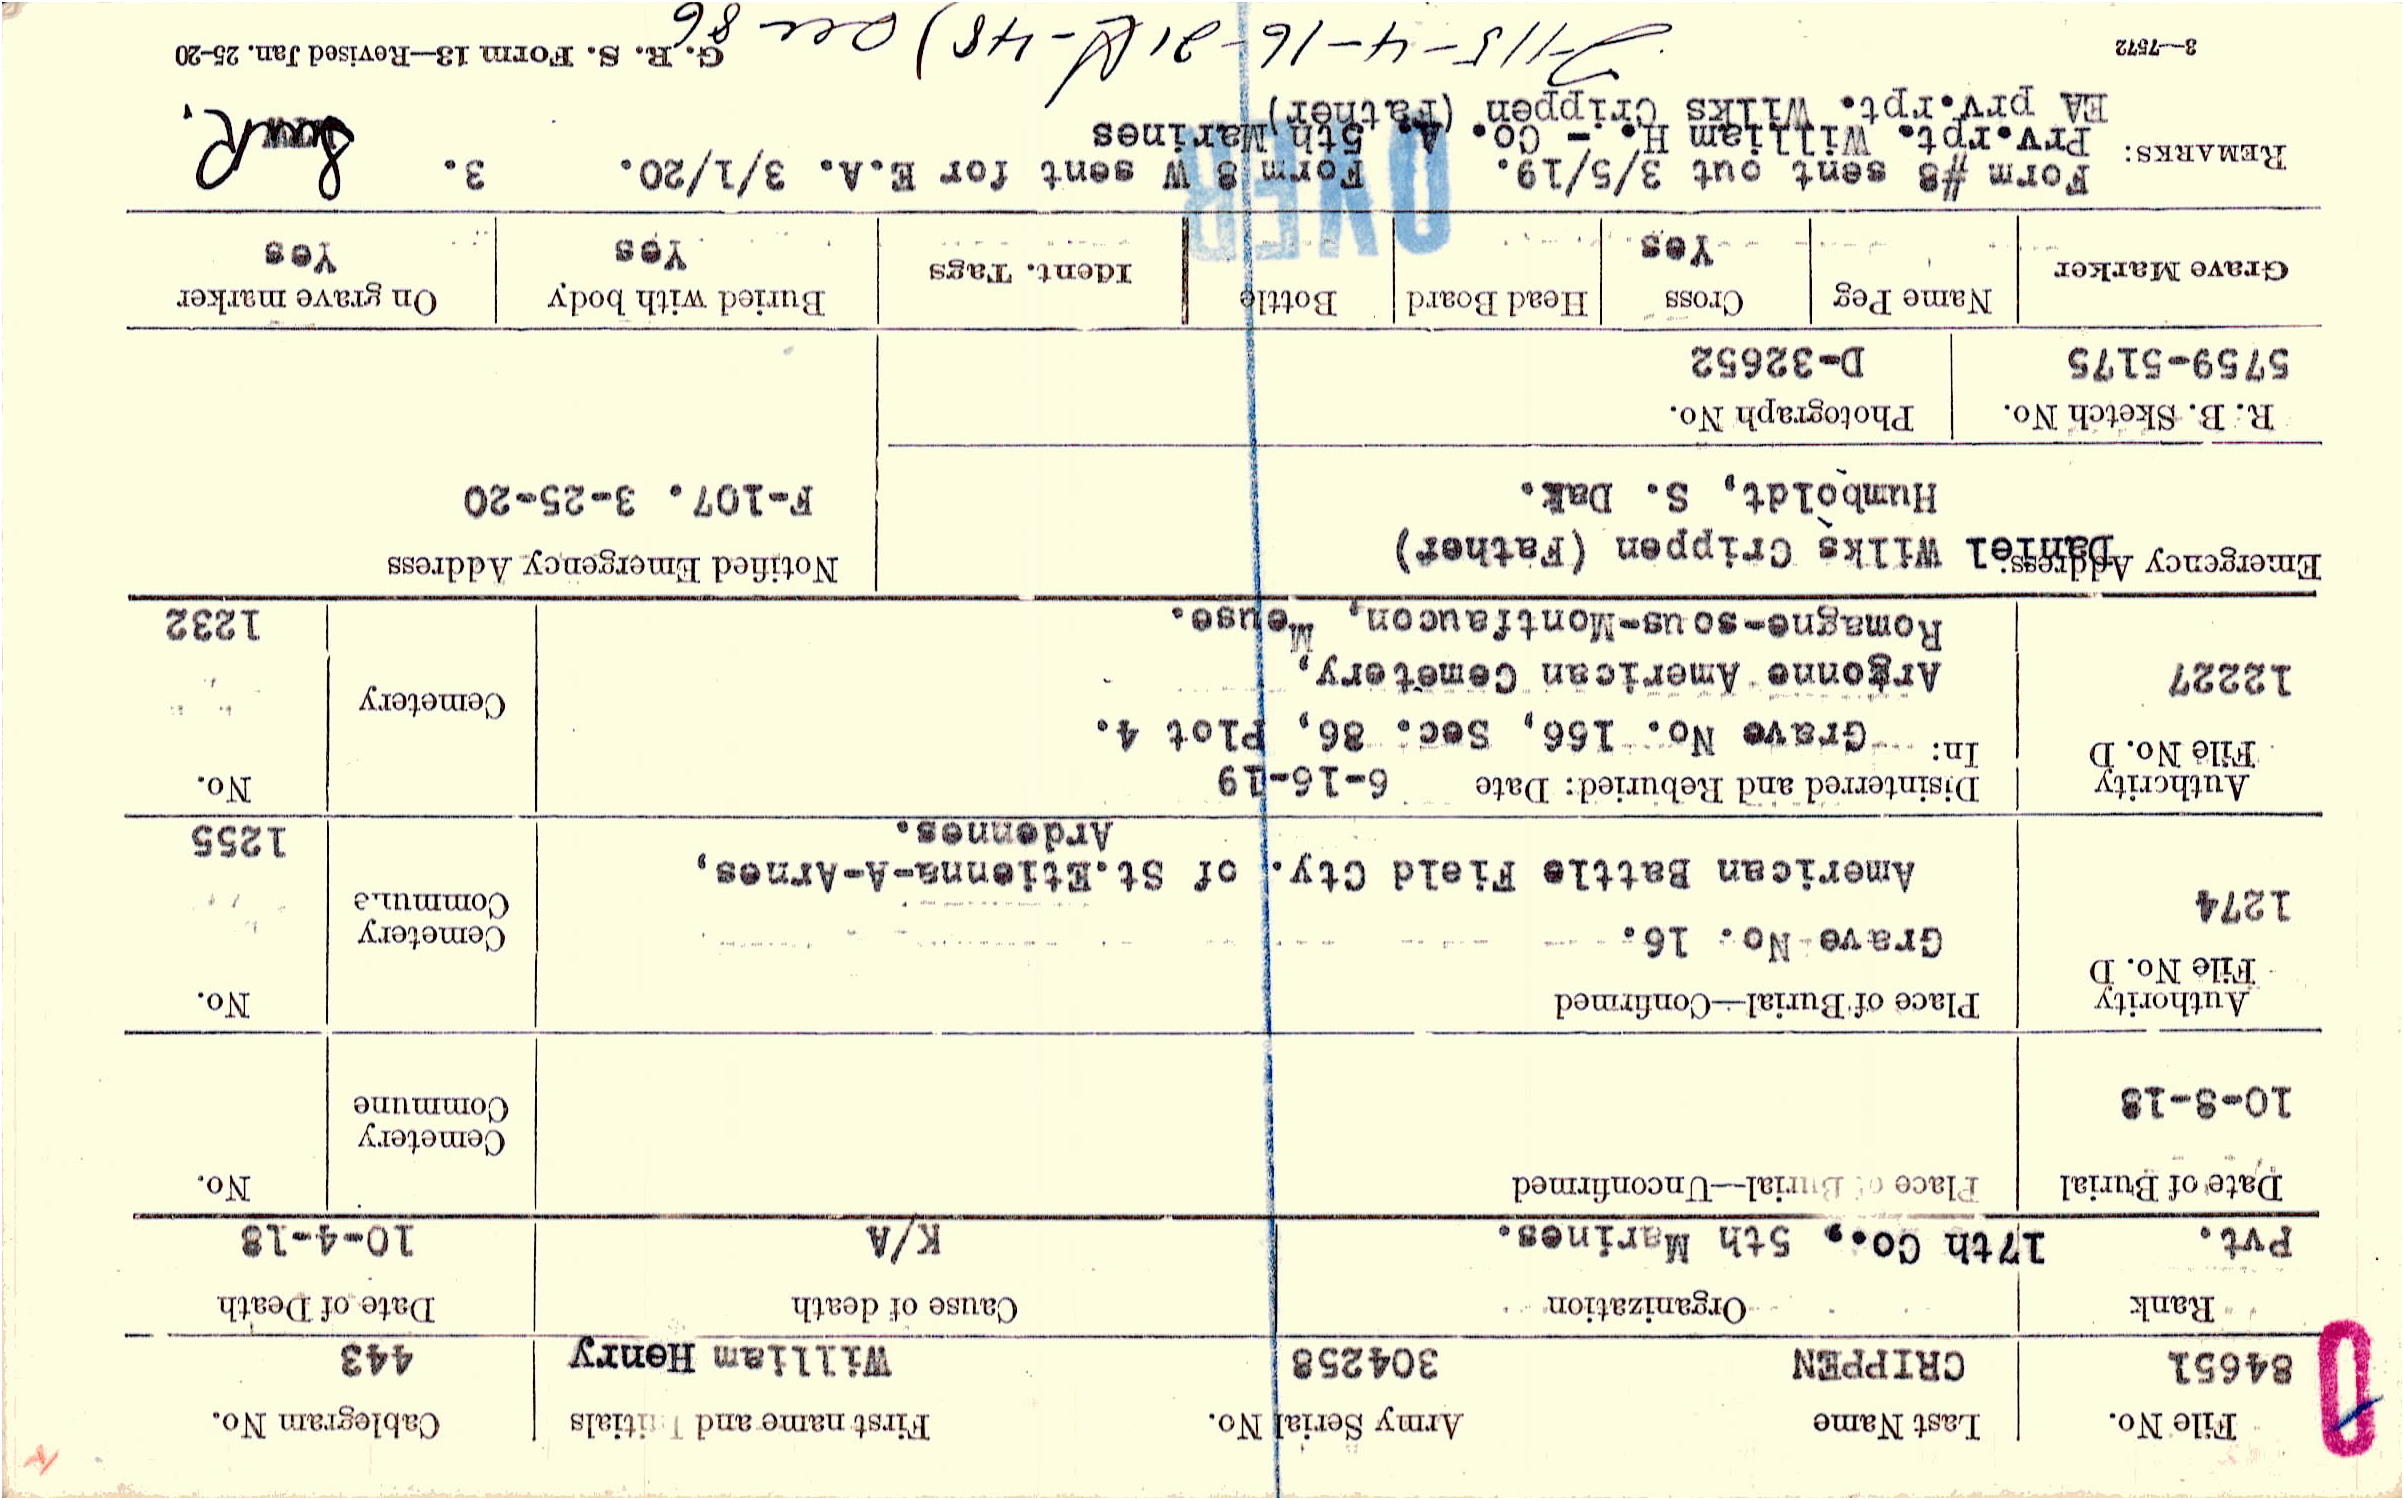 File No. Last Name Army Serial No. First name and Initials Cablegram No.
84651 CRIPPEN 304258 William Henry 443
Rank Organization Cause of death Date of Death
Pvt. 17th Co., 5th Marines. K/A 10-4-18
Date of Burial Place of Burial—Unconfirmed Cemetery Commune No.
10-8-18
Authority File No. D Place of Burial—Confirmed Cemetery Commune No.
1274 Grave No. 16. 1255
American Battle Field Cty. of St.Etienna-A-Arnes,
Ardennes.
Authority File No. D Disinterred and Reburied: Date 6-16-19 Cemetery No.
12227 In: Grave No. 156, Sec. 86, Plot 4. 1232
Argonne American Cemetery,
Romagne-sous-Montfaucon, Meuse.
Emergency Address: Daniel Wilks Crippen (Father) Notified Emergency Address
Humboldt, S. Dak. F-107. 3-25-20
R. B. Sketch No. Photograph No.
5759-5175 D-32652
Grave Marker Name Peg Cross Head Board Bottle Ident. Tags Buried with body On grave marker
Yes Yes Yes
OVER
REMARKS: Form #8 sent out 3/5/19. Form 8 W sent for E.A. 3/1/20. 3.
Prv.rpt. William H. - Co. A. 5th Marines
EA prv.rpt. Wilks Crippen (Father)
3—7572 G. R. S. Form 13—Revised Jan. 25-20